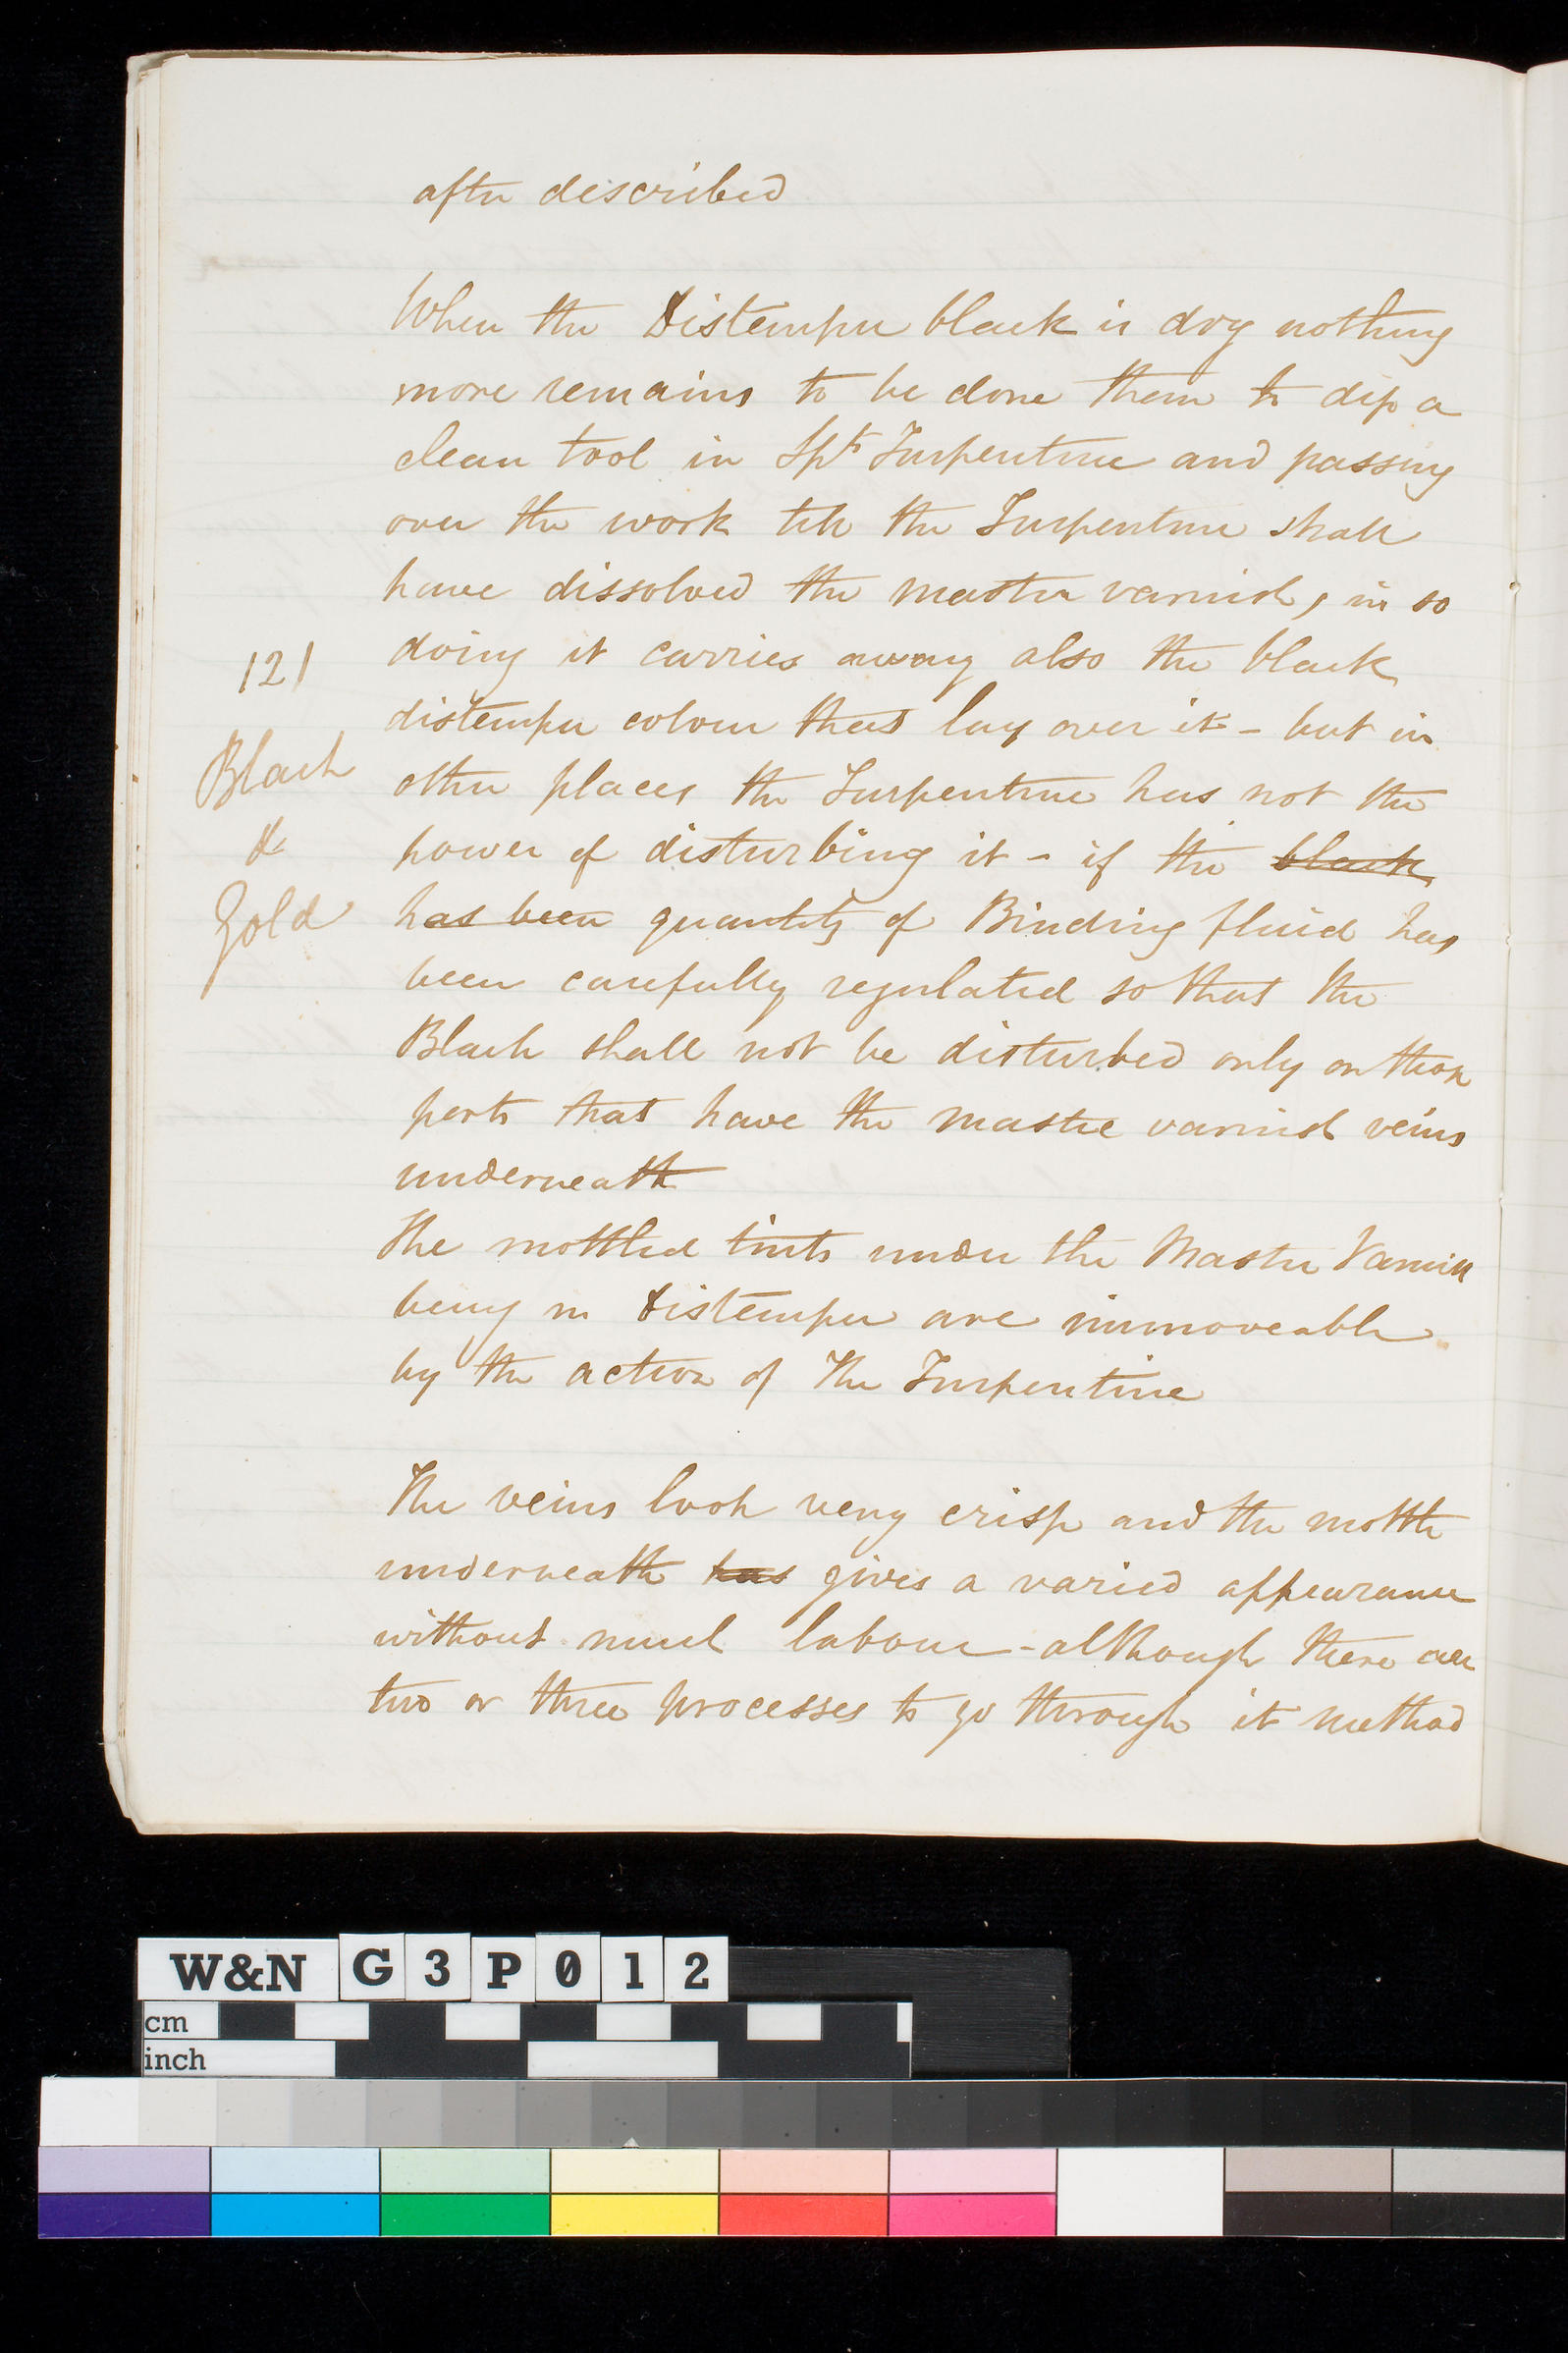 after described
When the Distemper black is dry nothing
more remains to be done than to dip a
clean tool in Spts Turpentine and passing
over the work till the Turpentine shall
have dissolved the mastic varnish, in so
doing it carries away also the black
distemper colour that lay over it - but in
other places the Turpentine has not the
power of disturbing it - if the black
has been quantity of Binding fluid has
been carefully regulated so that the
Black shall not be disturbed only on those
parts that have the mastic varnish veins
underneath
The mottled tints under the Mastic Varnish
being in Distemper are immoveable
by the action of The Turpentine
The veins look very crisp and the mottle
underneath has gives a varied appearance
without much labour - although there are
two or three processes to go through it method
121
Black
&
Gold
W&N G3P012
cm
inch